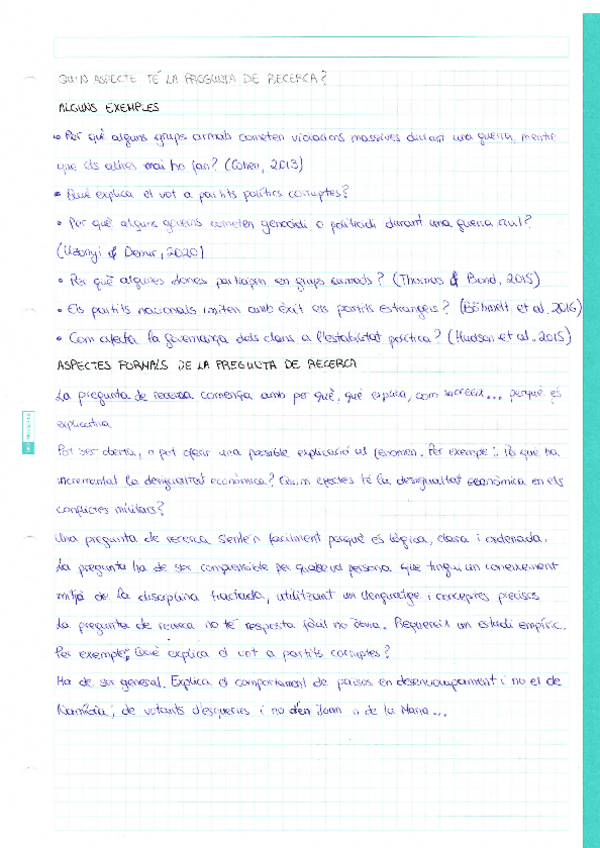 QUIN ASPECTE TÉ LA PREGUNTA DE RECERCA?
ALGUNS EXEMPLES
• Per què alguns grups armats cometen violacions massives durant una guerra, mentre
que els altres mai ho fan? (Cohen, 2013)
• Què explica el vot a partits polítics corruptes?
• Per què alguns governs cometen genocidi o politicidi durant una guerra civil?
(Uzonyi & Demir, 2020)
• Per què algunes dones participen en grups armats? (Thomas & Bond, 2015)
• Els partits nacionals imiten amb èxit els partits estrangers? (Böhmelt et al. 2016)
• Com afecta la governança dels clans a l'estabilitat política? (Hudson et al. 2015)
ASPECTES FORMALS DE LA PREGUNTA DE RECERCA
La pregunta de recerca comença amb per què, què explica, com succeeix... perquè és
explicativa
Pot ser oberta, o pot oferir una possible explicació al fenomen. Per exemple: Per què ha
incrementat la desigualtat econòmica? Quins efectes té la desigualtat econòmica en els
conflictes militars?
Una pregunta de recerca s'entén fàcilment perquè és lògica, clara i ordenada.
La pregunta ha de ser comprensible per qualsevol persona que tingui un coneixement
mitjà de la disciplina tractada, utilitzant un llenguatge i conceptes precisos
La pregunta de recerca no té resposta fàcil no òbvia. Requereix un estudi empíric.
Per exemple: Què explica el vot a partits corruptes?
Ha de ser general. Explica el comportament de països en desenvolupament i no el de
Namíbia; de votants d'esquerres i no d'en Joan o de la Maria...